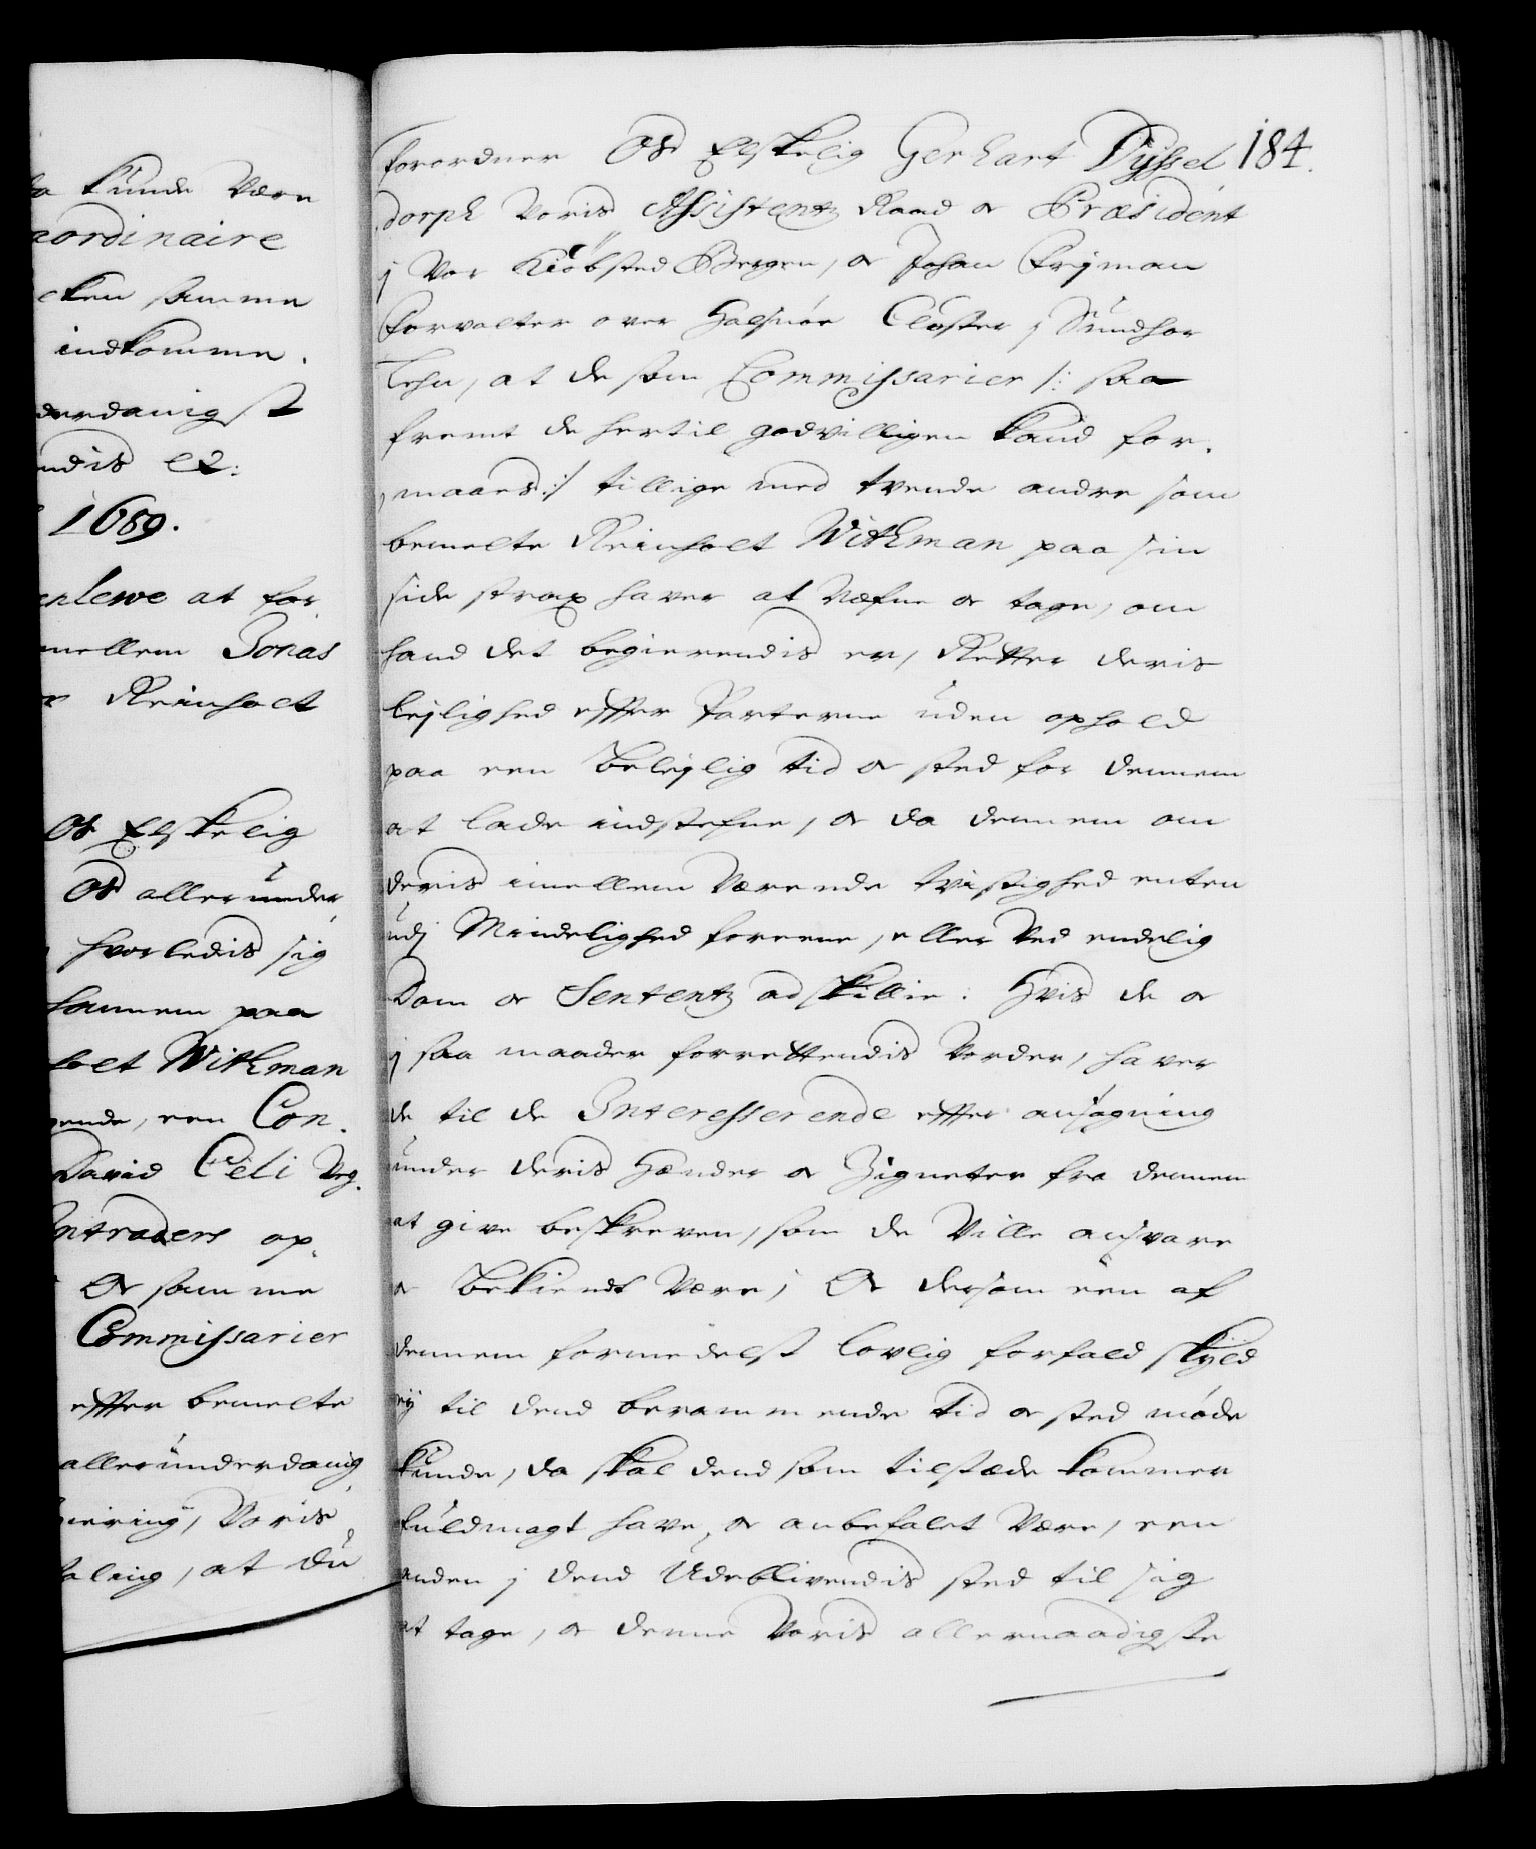 da kunde Være
aordinaire
cken samme
indkomme.
derdanigst
ndis etc:
1689.
enlewe at for
mellem Jonas
Reinholt
Os Elskelig
Os allerunder
hvorledis sig
hannem paa
holt Withman
gende, een Con.
David Celi Veg.
Intraders op
Og samme
Commissarier
effter bemelte
allerunderdanig
giering, Voris
faling, at du
forordner Os Elskelig Gerhart Dyssel 184.
dorph Voris Assistentz Raad og Præsident
j Vor Kiöbsted Bergen, og Johan Fryman
Forvalter over Halsnöe Closter j Sundhor
Lehn, at de som Commissarier /: saa
fremt de hertil godvilligen kand for.
maaes :/ tillige med tvende andre som
bemelte Reinholt Withman paa sin
side strax haver at Næfne og tage, om
hand det begierendis er, Retter deris
lejlighed effter Parterne uden ophold
paa een Belejlig tid og sted for dennem
at lade indstefne, og da dennem om
deris imellem Værende tvistighed enten
udj Mindelighed foreene, eller Ved endelig
Dom og Sententz adskillie: Hvis de og
j saa maader forrettendis Vorder, haver
de til de Interesserende effter ansögning
under deris Hænder og Zigneter fra dennem
at give beskreven, som de Ville ansvare
og Bekiendt Være; Og dersom een af
dennem formedelst lovlig forfald skyld
ej til dend berammende tid og sted möde
kunde, da skal dend som tilstæde kommer
fuldmagt have, og anbefalet Være, een
anden j dend Udeblivendis sted til sig
at tage, og denne Voris allernaadigste